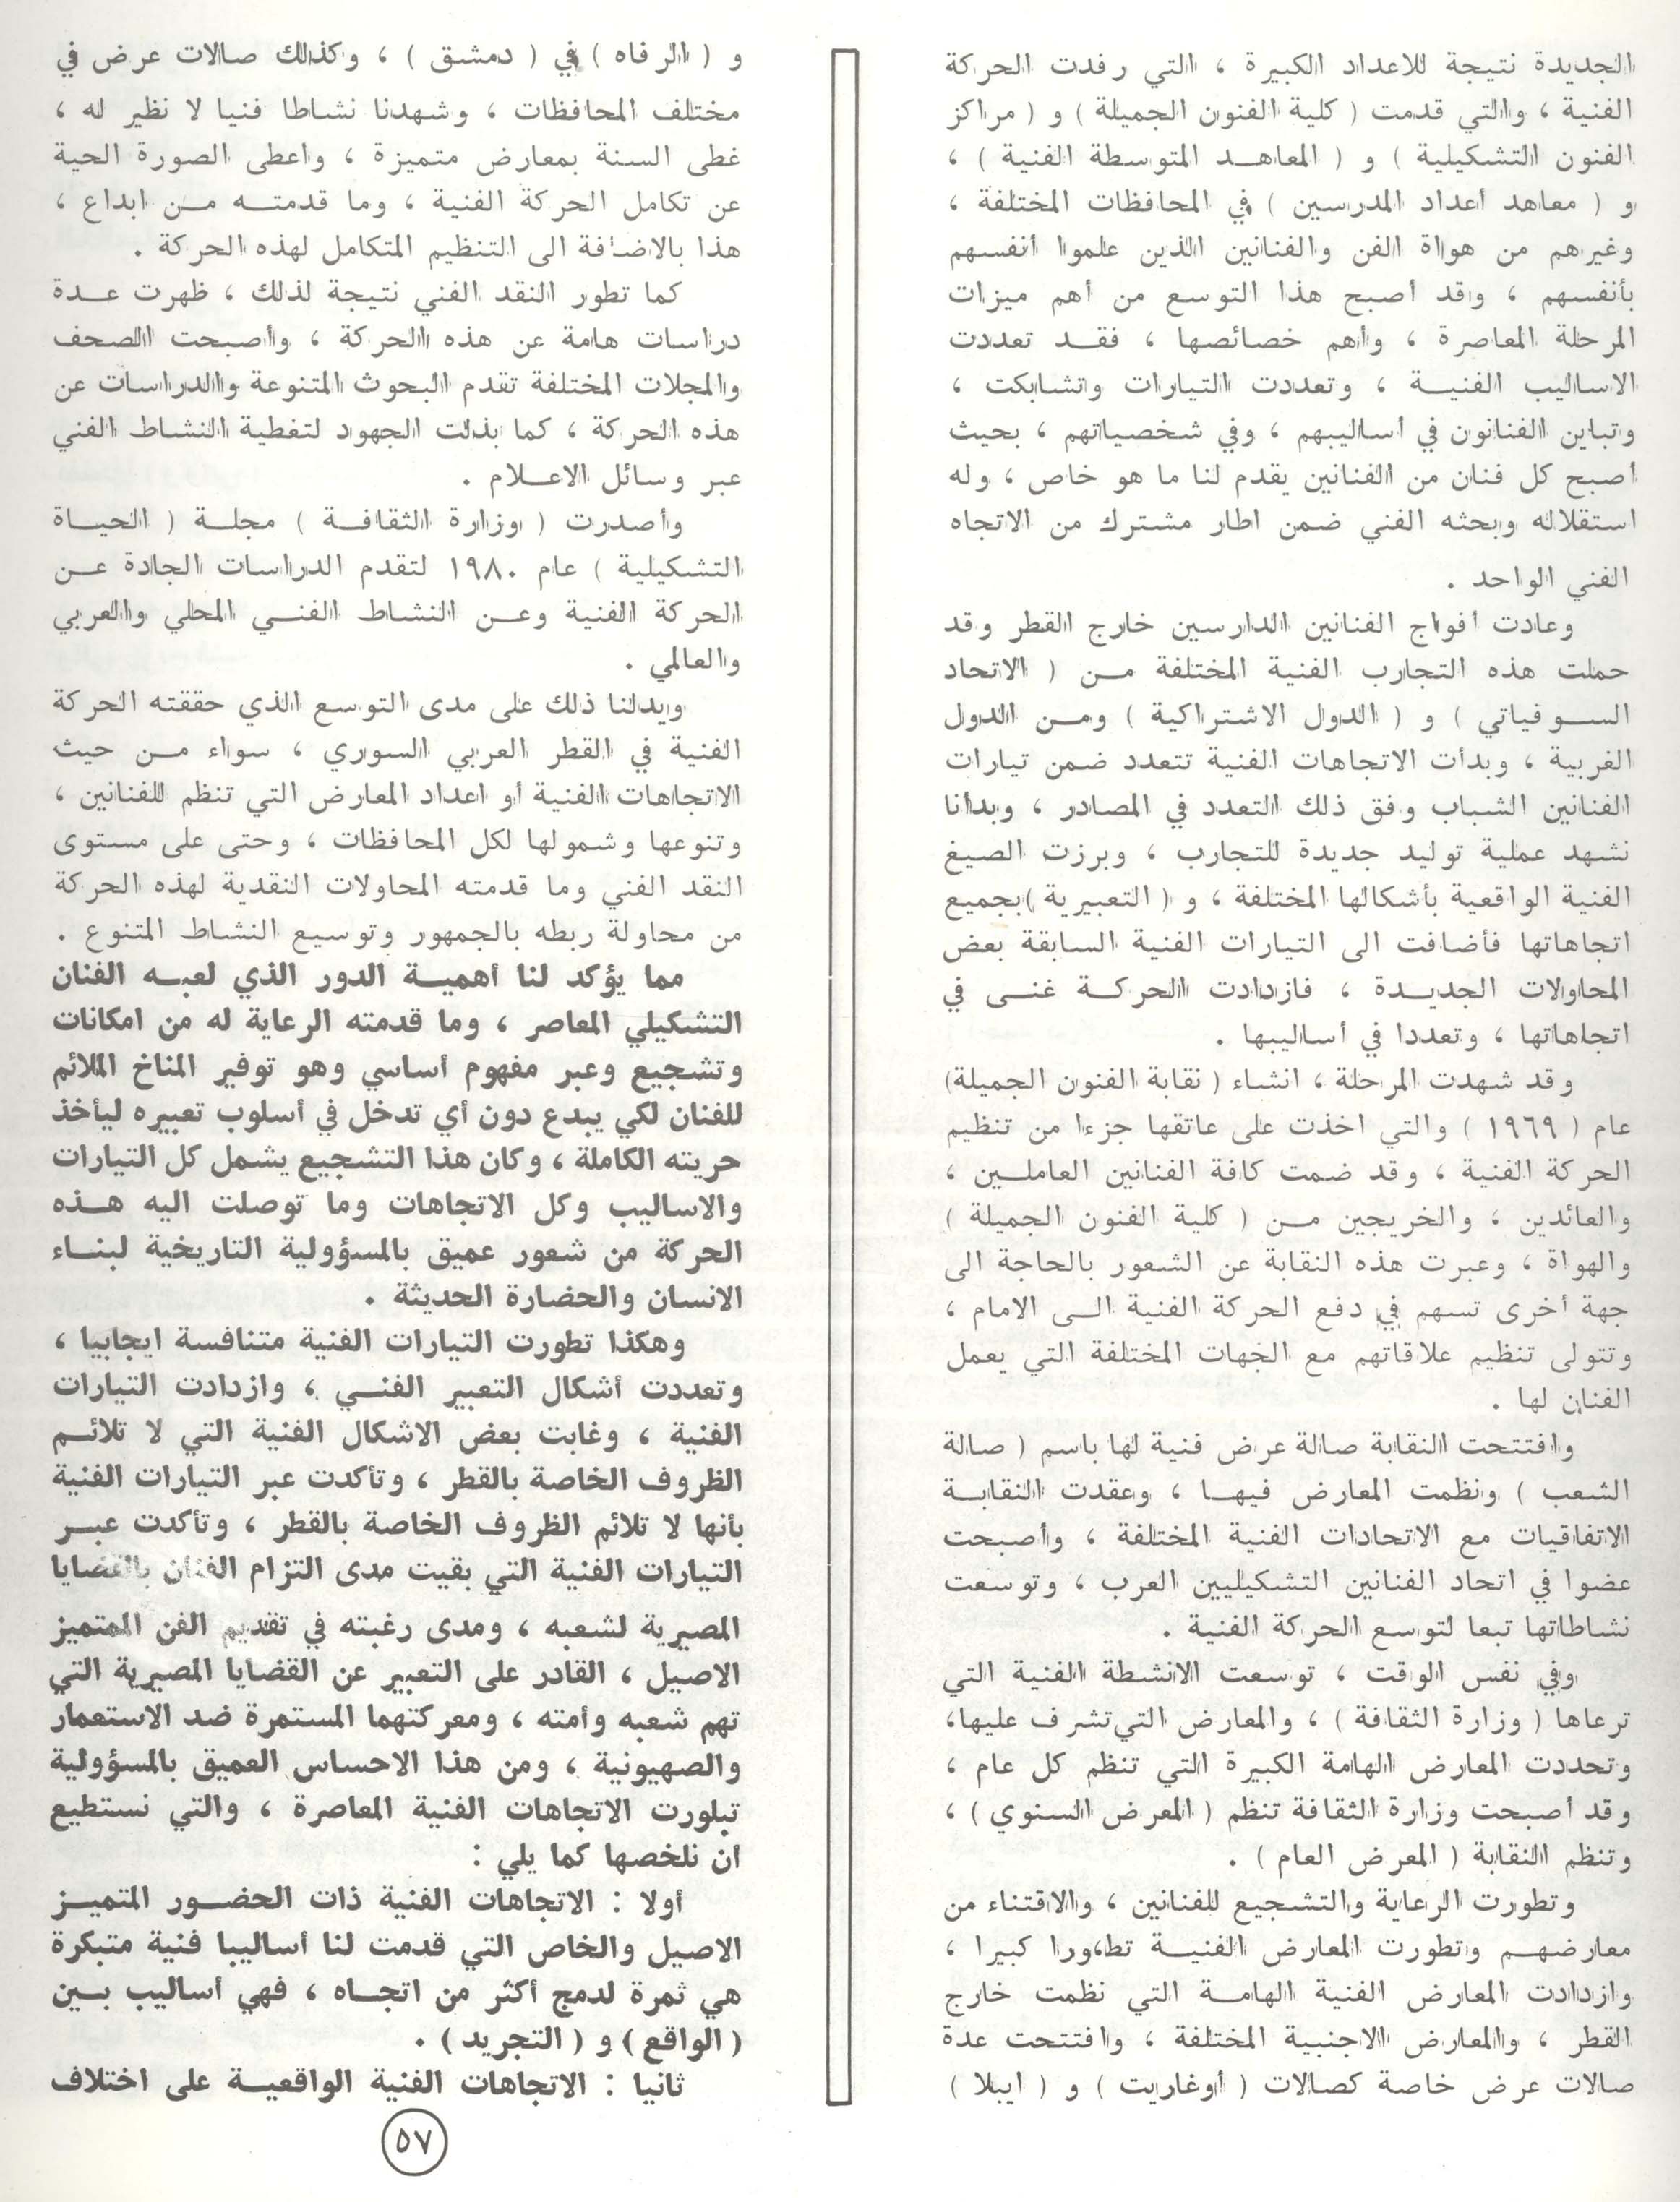 الجديدة نتيجة للاعداد الكبيرة ، التي رفدت الحركة
الفنية ، والتي قدمت ( كلية الفنون الجميلة ) و ( مراكز
الفنون التشكيلية ) و ( المعاهد المتوسطة الفنية ) ،
و ( معاهد أعداد المدرسين ) في المحافظات المختلفة ،
وغيرهم من هواة الفن والفنانين الذين علموا أنفسهم
بأنفسهم ، وقد أصبح هذا التوسع من أهم ميزات
المرحلة المعاصرة ، وأهم خصائصها ، فقد تعددت
الاساليب الفنية ، وتعددت التيارات وتشابكت ،
وتباين الفنانون في أساليبهم ، وفي شخصياتهم ، بحيث
أصبح كل فنان من الفنانين يقدم لنا ما هو خاص ، وله
استقلاله وبحثه الفني ضمن اطار مشترك من الاتجاه
الفني الواحد .
وعادت أفواج الفنانين الدارسين خارج القطر وقد
حملت هذه التجارب الفنية المختلفة من ( الاتحاد
السوفياتي ) و ( الدول الاشتراكية ) ومن الدول
الغربية ، وبدأت الاتجاهات الفنية تتعدد ضمن تيارات
الفنانين الشباب وفق ذلك التعدد في المصادر ، وبدأنا
نشهد عملية توليد جديدة للتجارب ، وبرزت الصيغ
الفنية الواقعية بأشكالها المختلفة ، و ( التعبيرية ) بجميع
اتجاهاتها فأضافت الى التيارات الفنية السابقة بعض
المحاولات الجديدة ، فازدادت الحركة غنى في
اتجاهاتها ، وتعددا في أساليبها .
وقد شهدت المرحلة ، انشاء ( نقابة الفنون الجميلة)
عام ( ١٩٦٩ ) والتي اخذت على عاتقها جزءا من تنظيم
الحركة الفنية ، وقد ضمت كافة الفنانين العاملين ،
والعائدين ، والخريجين من ( كلية الفنون الجميلة )
والهواة ، وعبرت هذه النقابة عن الشعور بالحاجة الى
جهة أخرى تسهم في دفع الحركة الفنية الى الامام ،
وتتولى تنظيم علاقاتهم مع الجهات المختلفة التي يعمل
الفنان لها .
وافتتحت النقابة صالة عرض فنية لها باسم ( صالة
الشعب ) ونظمت المعارض فيها ، وعقدت النقابة
الاتفاقيات مع الاتحادات الفنية المختلفة ، وأصبحت
عضوا في اتحاد الفنانين التشكيليين العرب ، وتوسعت
نشاطاتها تبعا لتوسع الحركة الفنية .
وفي نفس الوقت ، توسعت الانشطة الفنية التي
ترعاها ( وزارة الثقافة ) ، والمعارض التي تشرف عليها،
وتحددت المعارض الهامة الكبيرة التي تنظم كل عام ،
وقد أصبحت وزارة الثقافة تنظم ( المعرض السنوي ) ،
وتنظم النقابة ( المعرض العام ) .
وتطورت الرعاية والتشجيع للفنانين ، والاقتناء من
معارضهم وتطورت المعارض الفنية تطورا كبيرا ،
وازدادت المعارض الفنية الهامة التي نظمت خارج
القطر ، والمعارض الاجنبية المختلفة ، وافتتحت عدة
صالات عرض خاصة كصالات ( أوغاريت ) و ( ايبلا )
و ( الرفاه ) في ( دمشق ) ، وكذلك صالات عرض في
مختلف المحافظات ، وشهدنا نشاطا فنيا لا نظير له ،
غطى السنة بمعارض متميزة ، واعطى الصورة الحية
عن تكامل الحركة الفنية ، وما قدمته من ابداع ،
هذا بالاضافة الى التنظيم المتكامل لهذه الحركة .
كما تطور النقد الفني نتيجة لذلك ، ظهرت عدة
دراسات هامة عن هذه الحركة ، وأصبحت الصحف
والمجلات المختلفة تقدم البحوث المتنوعة والدراسات عن
هذه الحركة ، كما بذلت الجهود لتغطية النشاط الفني
عبر وسائل الاعلام .
وأصدرت ( وزارة الثقافة ) مجلة ( الحياة
التشكيلية ) عام ١٩٨٠ لتقدم الدراسات الجادة عن
الحركة الفنية وعن النشاط الفني المحلي والعربي
والعالمي .
ويدلنا ذلك على مدى التوسع الذي حققته الحركة
الفنية في القطر العربي السوري ، سواء من حيث
الاتجاهات الفنية أو اعداد المعارض التي تنظم للفنانين ،
وتنوعها وشمولها لكل المحافظات ، وحتى على مستوى
النقد الفني وما قدمته المحاولات النقدية لهذه الحركة
من محاولة ربطه بالجمهور وتوسيع النشاط المتنوع .
مما يؤكد لنا أهمية الدور الذي لعبه الفنان
التشكيلي المعاصر ، وما قدمته الرعاية له من امكانات
وتشجيع وعبر مفهوم أساسي وهو توفير المناخ الملائم
للفنان لكي يبدع دون أي تدخل في أسلوب تعبيره ليأخذ
حريته الكاملة ، وكان هذا التشجيع يشمل كل التيارات
والاساليب وكل الاتجاهات وما توصلت اليه هذه
الحركة من شعور عميق بالمسؤولية التاريخية لبناء
الانسان والحضارة الحديثة .
وهكذا تطورت التيارات الفنية متنافسة ايجابيا ،
وتعددت أشكال التعبير الفني ، وازدادت التيارات
الفنية ، وغابت بعض الاشكال الفنية التي لا تلائم
الظروف الخاصة بالقطر ، وتأكدت عبر التيارات الفنية
بأنها لا تلائم الظروف الخاصة بالقطر ، وتأكدت عبر
التيارات الفنية التي بقيت مدى التزام الفنان بالقضايا
المصيرية لشعبه ، ومدى رغبته في تقديم الفن المتميز
الاصيل ، القادر على التعبير عن القضايا المصيرية التي
تهم شعبه وأمته ، ومعركتهما المستمرة ضد الاستعمار
والصهيونية ، ومن هذا الاحساس العميق بالمسؤولية
تبلورت الاتجاهات الفنية المعاصرة ، والتي نستطيع
أن نلخصها كما يلي :
أولا : الاتجاهات الفنية ذات الحضور المتميز
الاصيل والخاص التي قدمت لنا أساليبا فنية متبكرة
هي ثمرة لدمج أكثر من اتجاه ، فهي أساليب بين
( الواقع ) و ( التجريد ) .
ثانيا : الاتجاهات الفنية الواقعية على اختلاف
٥٧